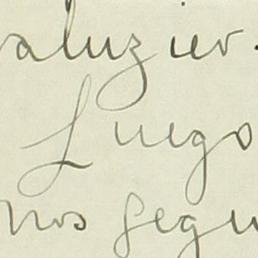 aluzier.
Luego
nos segu